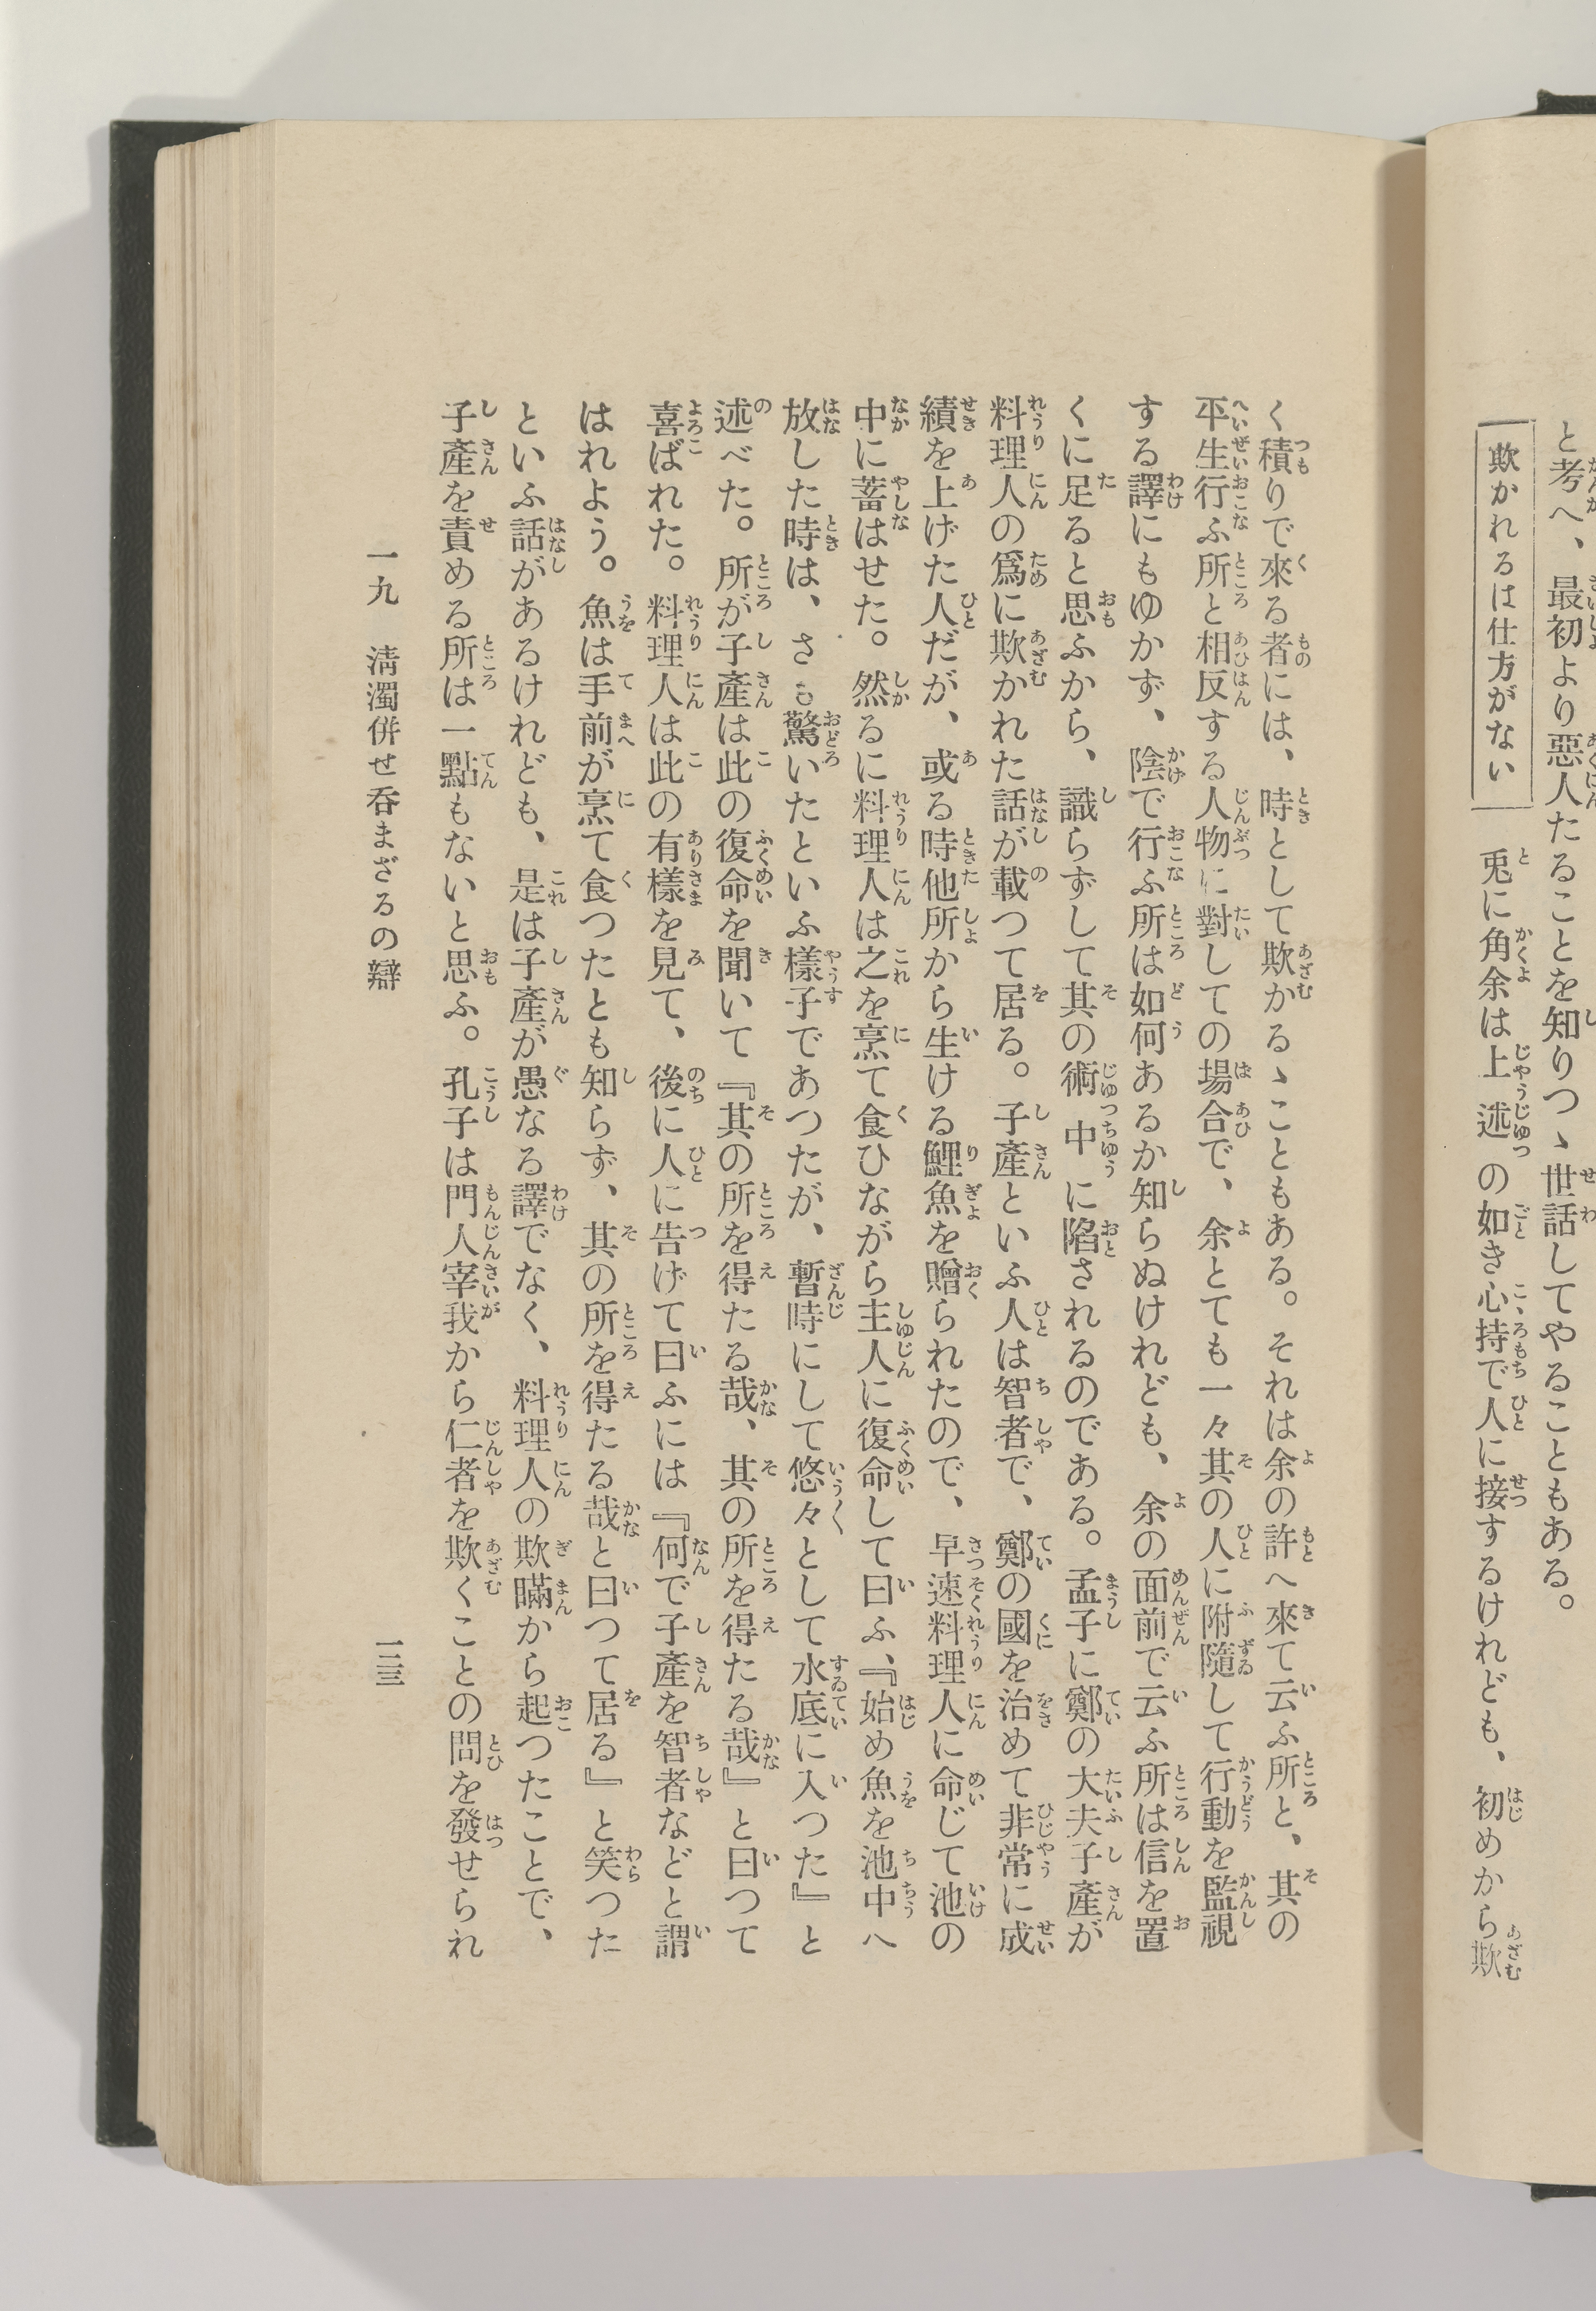 と考へ、最初より惡人たることを知りつゝ世話してやることもある。
欺かれるは仕方がない
兎に角余は上述の如き心持で人に接するけれども、初めから欺
く積りで來る者には、時として欺かるゝこともある。それは余の許へ來て云ふ所と、其の
平生行ふ所と相反する人物に對しての場合で、余とても一々其の人に附隨して行動を監視
する譯にもゆかず、陰で行ふ所は如何あるか知らぬけれども、余の面前で云ふ所は信を置
くに足ると思ふから、識らずして其の術中に陷されるのである。孟子に鄭の大夫子產が
料理人の爲に欺かれた話が載つて居る。子產といふ人は智者で、鄭の國を治めて非常に成
績を上げた人だが、或る時他所から生ける鯉魚を贈られたので、早速料理人に命じて池の
中に蓄はせた。然るに料理人は之を烹て食ひながら主人に復命して曰ふ、『始め魚を池中へ
放した時は、さも驚いたといふ樣子であつたが、暫時にして悠々として水底に入つた』と
述べた。所が子產は此の復命を聞いて『其の所を得たる哉、其の所を得たる哉』と曰つて
喜ばれた。料理人は此の有樣を見て、後に人に告げて曰ふには『何で子產を智者などと謂
はれよう。魚は手前が烹て食つたとも知らず、其の所を得たる哉と曰つて居る』と笑つた
といふ話があるけれども、是は子產が愚なる譯でなく、料理人の欺瞞から起つたことで、
子產を責める所は一點もないと思ふ。孔子は門人宰我から仁者を欺くことの問を發せられ
一九 淸濁併せ呑まざるの辯
一二三